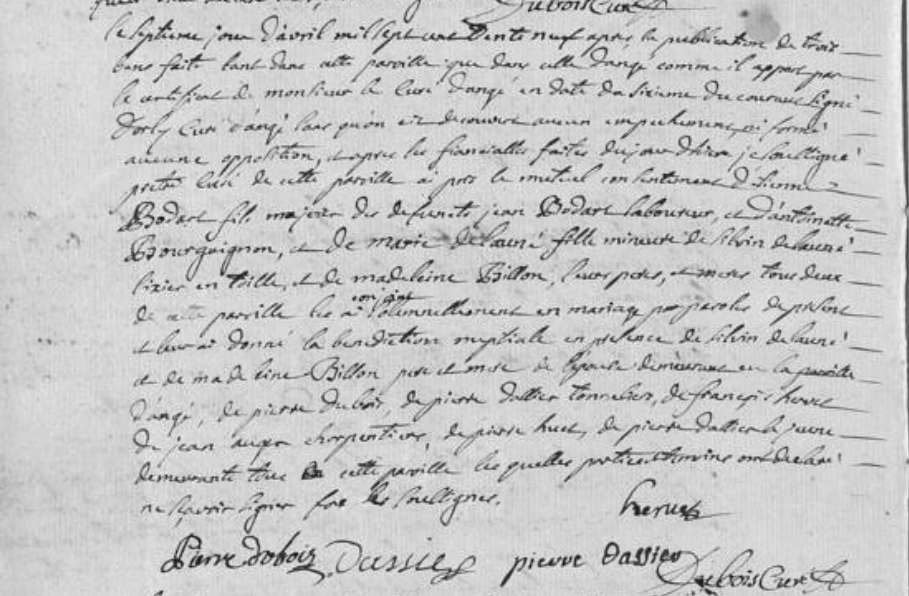 Dubois Curé
le septieme jour d'avril mil sept cent trente neuf apres la publication de trois
bans faite tant dans cette paroille que dans celle d'angé comme il appert par
le certificat de monsieur le Curé d'angé en date du sixieme du courant signé
Curé d'angé sans qu'on ait decouvert aucun empechement, ni formé
aucune opposition, et apres les fiancialles faites du jour d'hier je soussigné
pretre Curé de cette paroille ai pris le mutuel consentement d'Etienne
Bodart fils majeur des defunts jean Bodart laboureur, et d'antoinette
Bourguignon, et de marie delauné fille mineure de silvin delauné
tixier en toille, et de madeleine Billon, leurs peres, et meres tous deux
de cette paroille les ai conjoint solemnellement en mariage par parole de present
et leur ai donné la benediction nuptiale en presence de silvin delauné
et de madeleine Billon pere et mere de l'epouse demeurant en la paroille
d'angé, de pierre dubois, de pierre dassier tonnelier, de françois hervet
de jean auger charpentier, de pierre huet, de pierre dassier le jeune
demeurants tous en cette paroille les quelles parties et temoins ont declaré
ne sçavoir signer fors les soussignes.
hervet
Pierre dubois Dassier pierre Dassier Dubois Curé